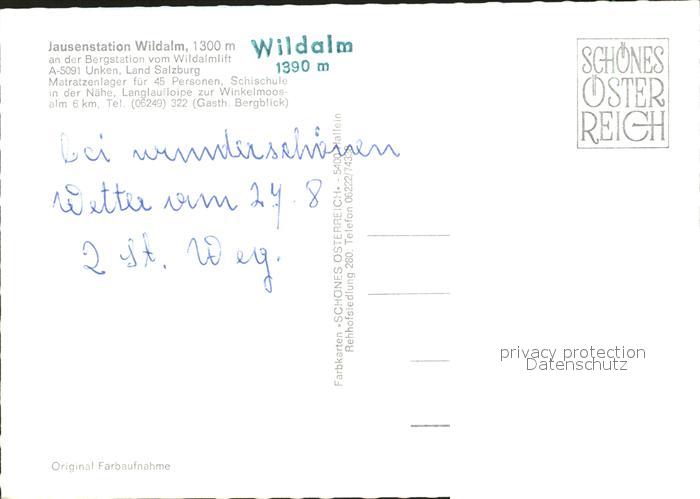 Jausenstation Wildalm, 1300 m
an der Bergstation vom Wildalmlift
A-5091 Unken, Land Salzburg
Matratzenlager für 45 Personen, Schischule
in der Nähe, Langlaufloipe zur Winkelmoos-
alm 6 km, Tel. (06249) 322 (Gasth. Bergblick)
Wildalm
1390 m
SCHÖNES
ÖSTER
REICH
bei wunderschönen
Wetter am 27. 8
2 St. Weg.
Farbkarten »SCHÖNES ÖSTERREICH« - 5400 Hallein
Rehhofsiedlung 280, Telefon 06222/743
privacy protection
Datenschutz
Original Farbaufnahme